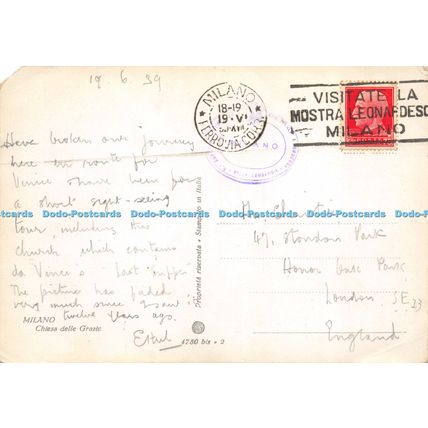 19.6.39
MILANO
18-19
19·VI
FERROVIA CORR.
VISITATE LA
MOSTRA LEONARDESCA
MILANO
Have broken our journey
here en route for
Venice & have been for
a short sight-seeing
tour, including this
church which contains
da Vinci's "Last Supper".
The picture has faded
very much since I saw it
twelve years ago.
Ethel
MILANO
Chiesa delle Grazie
Proprietà riservata - Stampato in Italia
4780 bis - 2
47, Stondon Park
Honor Oak Park
London, SE 23
England
Dodo-Postcards Dodo-Postcards Dodo-Postcards Dodo-Postcards Dodo-Postcards